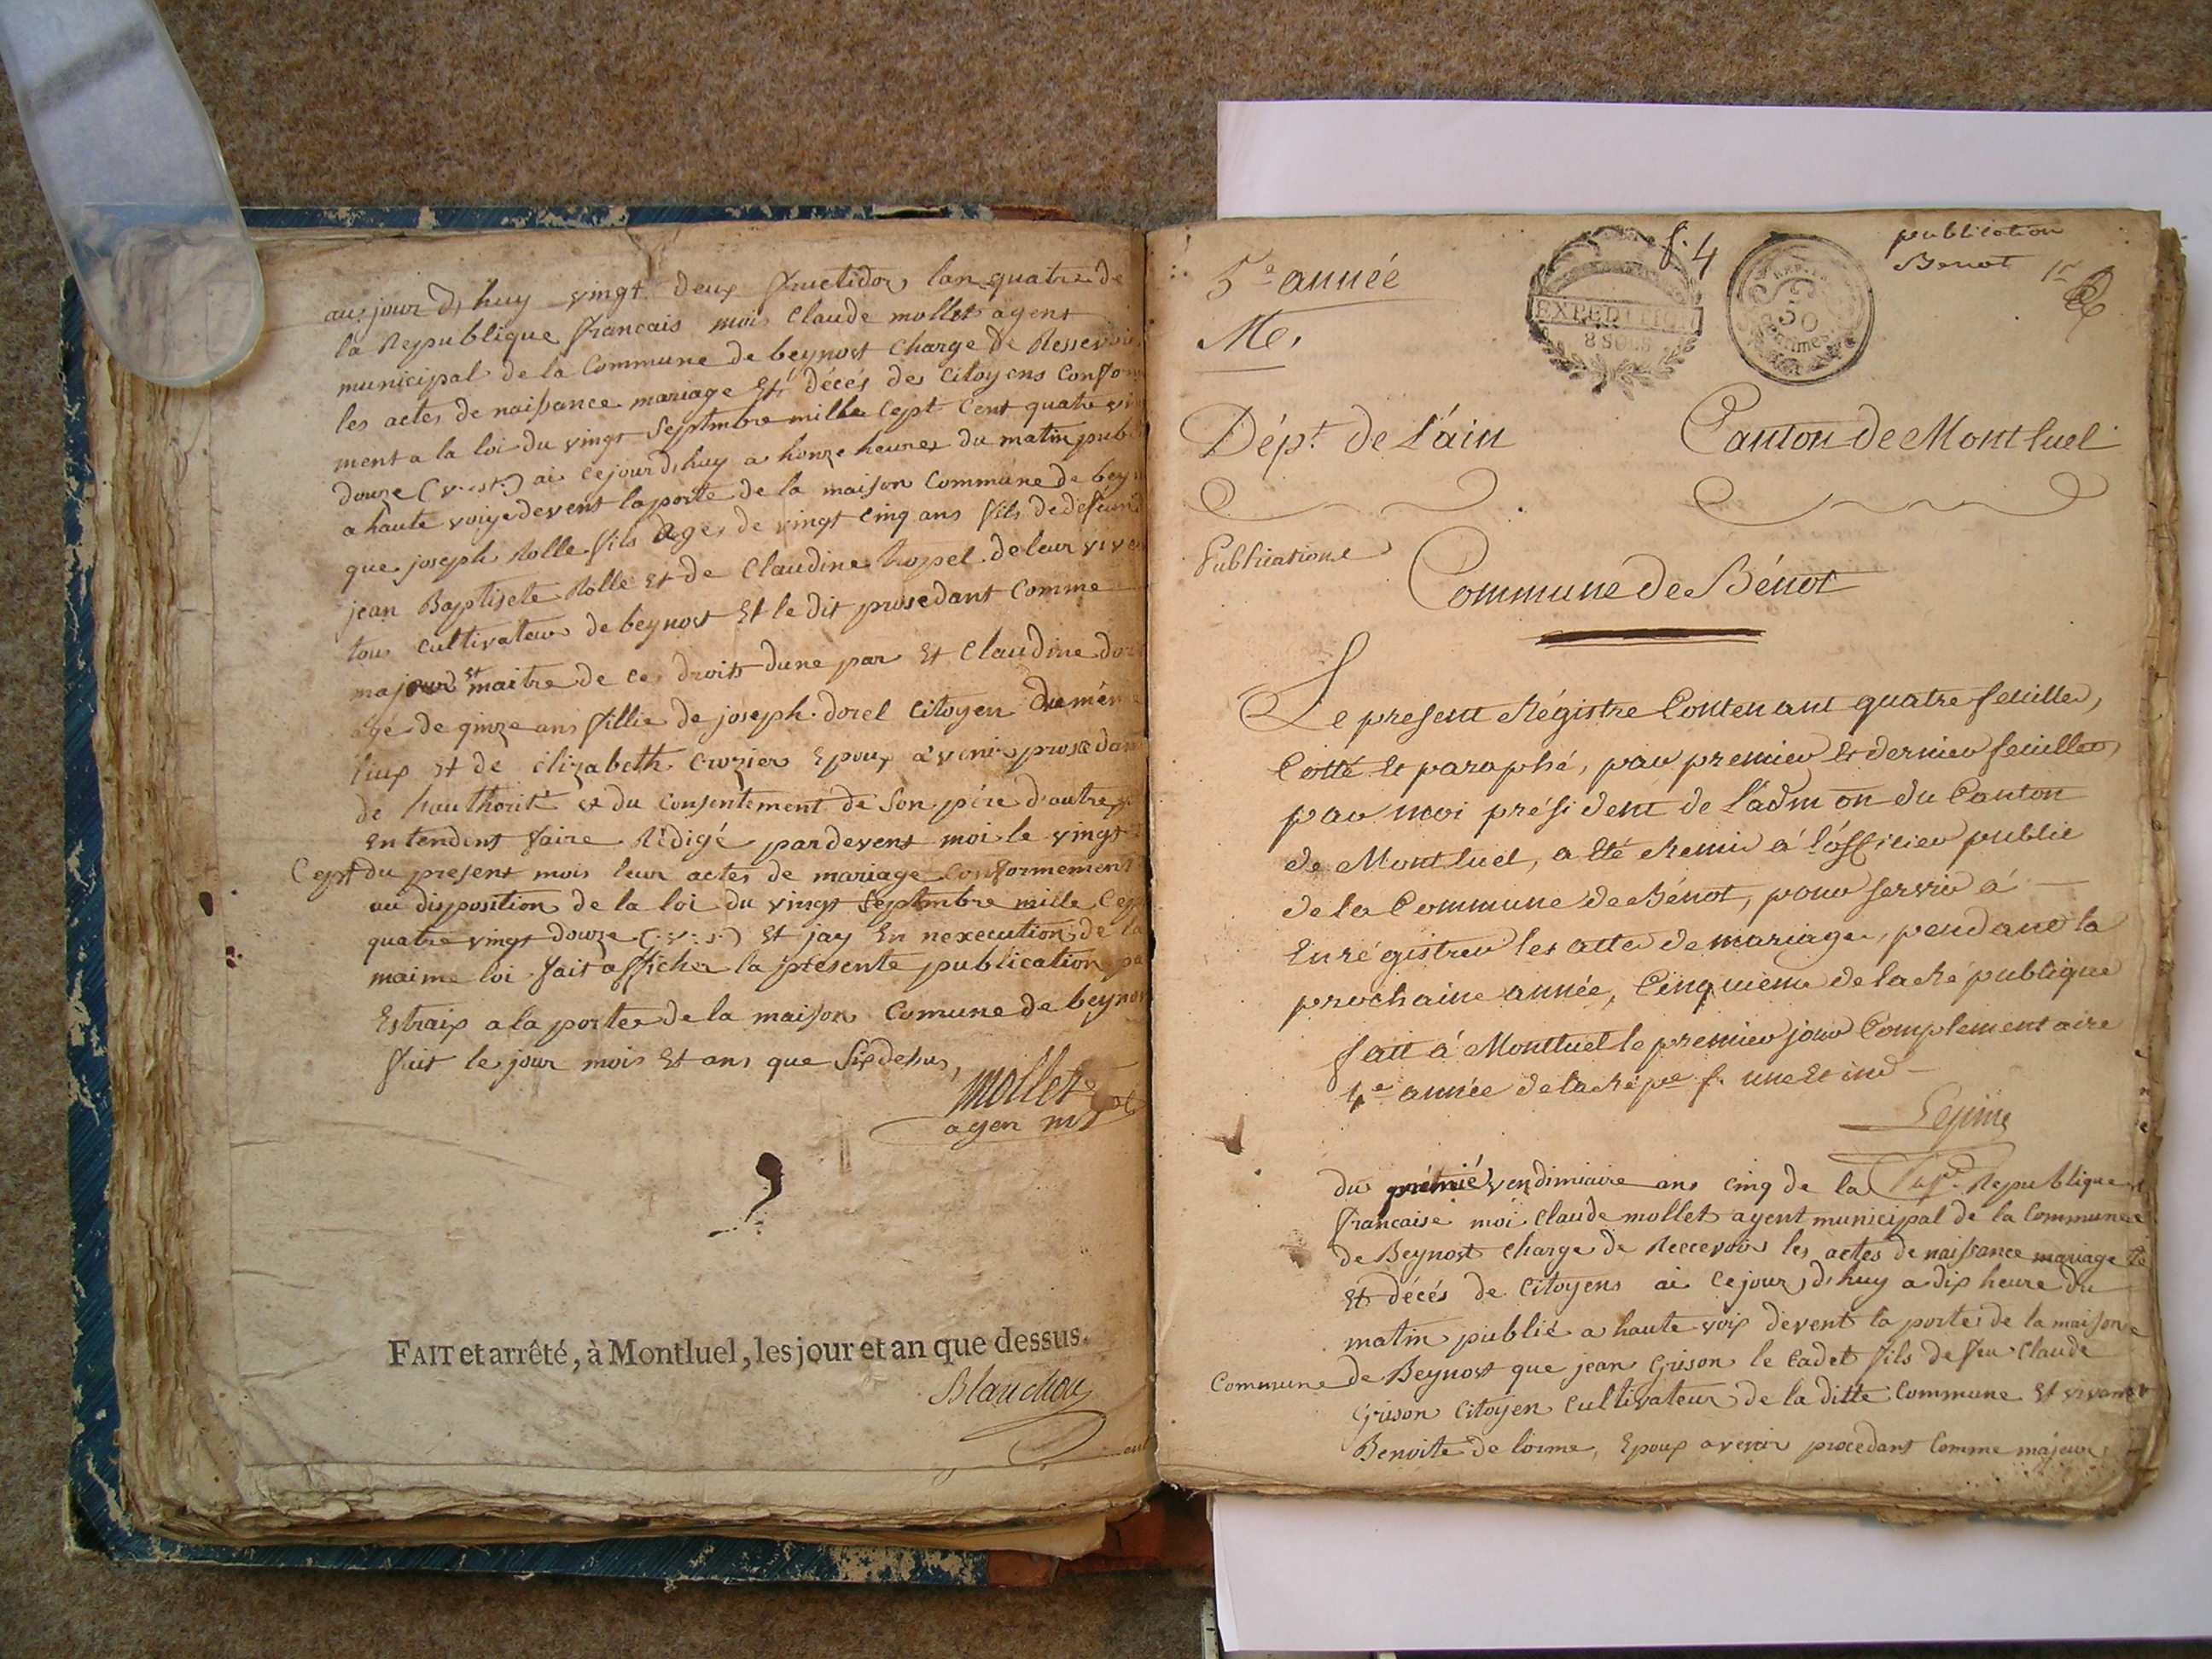 aujourd, huy vingt deux fructidor lan quatre de
la Republique francais moi Claude mollet agent
municipal de la Commune de beynost charge de
les actes de naissance mariage Et décés des Citoyens
ment a la loi du vingt Septmbre mille Cept Cent quatre
douze (v. st.) ai cejourd, huy a honze heures du matin
a haute voix devent la porte de la maison Commune de
que joseph Rolle fils age de vingt cinq ans fils de
jean Baptisete Rolle Et de Claudine de leur
tous Cultivateur de beynost Et le dit prosedant Comme
majeur et maitre de ces droits dune par Et Claudine
agé de qinze ans fillie de joseph dorel Citoyen du
liux Et de elizabeth Crozier Epoux a venir
de hauthorité et du Consentement de Son pére d'autre
Entendent faire Rédigé pardevent moi le vingt
Cept du present mois leur actes de mariage Conformement
au disposition de la loi du vingt Septmbre mille
quatre vingt douze (v. s.) Et jay En nexecution de la
maime loi fait afficher la présente publication
Estraix a la porte de la maison Comune de
fait le jour mois Et ans que Sixdehus,
mollet
agen
FAIT et arrêté, à Montluel, les jour et an que dessus.
Blanchon
f. 4
publication
Benot
1er
5e année
Me,
EXPEDITION
8 SOLS
50
centimes
Dépt. de L'ain
Canton de Montluel
Publications
Commune de Bénot
Le present Régistre Contenant quatre feuilles,
Cotté et paraphé, par premier et dernier feuillets,
par moi président de L'adm on du Canton
de Montluel, a été Remis á l'officier public
de la Commune de Bénot, pour servir á
Enrégistrer les actes de mariage, pendant la
prochaine année, Cinquieme de la République
fait á Montluel le premier jour Complementaire
4e année de la Répue f. une et ind
Lepine
du prémié vendimiaire ans cinq de la Republique
francaise moi Claude mollet agent municipal de la Commune
de Beynost Charge de Reccevoir les actes de naissance mariage
Et décés de Citoyens ai Cejourd, huy a dix heure du
matin publié a haute voix devent la porte de la maison
Commune de Beynost que jean Grison le Cadet fils de feu Claude
Grison Citoyen Cultivateur de la ditte Commune Et vivant
Benoite de lorme, Epoux avenir procedant Comme majeur